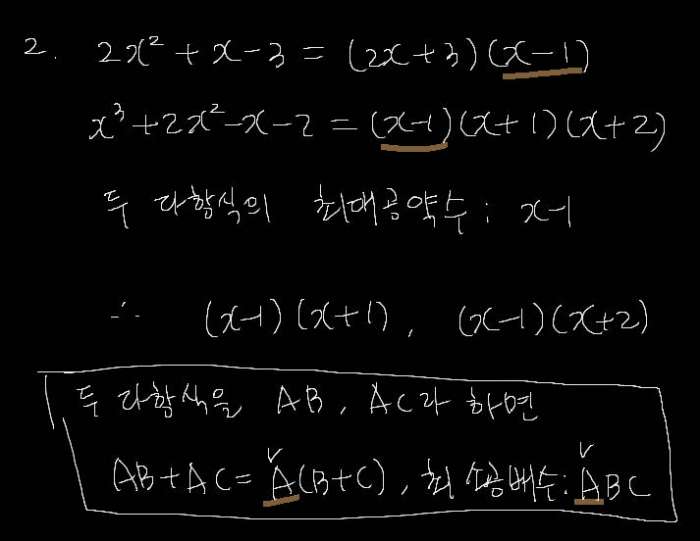 2. 2x² + x - 3 = (2x+3)(x-1)
x³+2x²-x-2 = (x-1)(x+1)(x+2)
두 다항식의 최대공약수: x-1
∴ (x-1)(x+1), (x-1)(x+2)
두 다항식을 AB, AC라 하면
AB+AC = A(B+C), 최소공배수: ABC